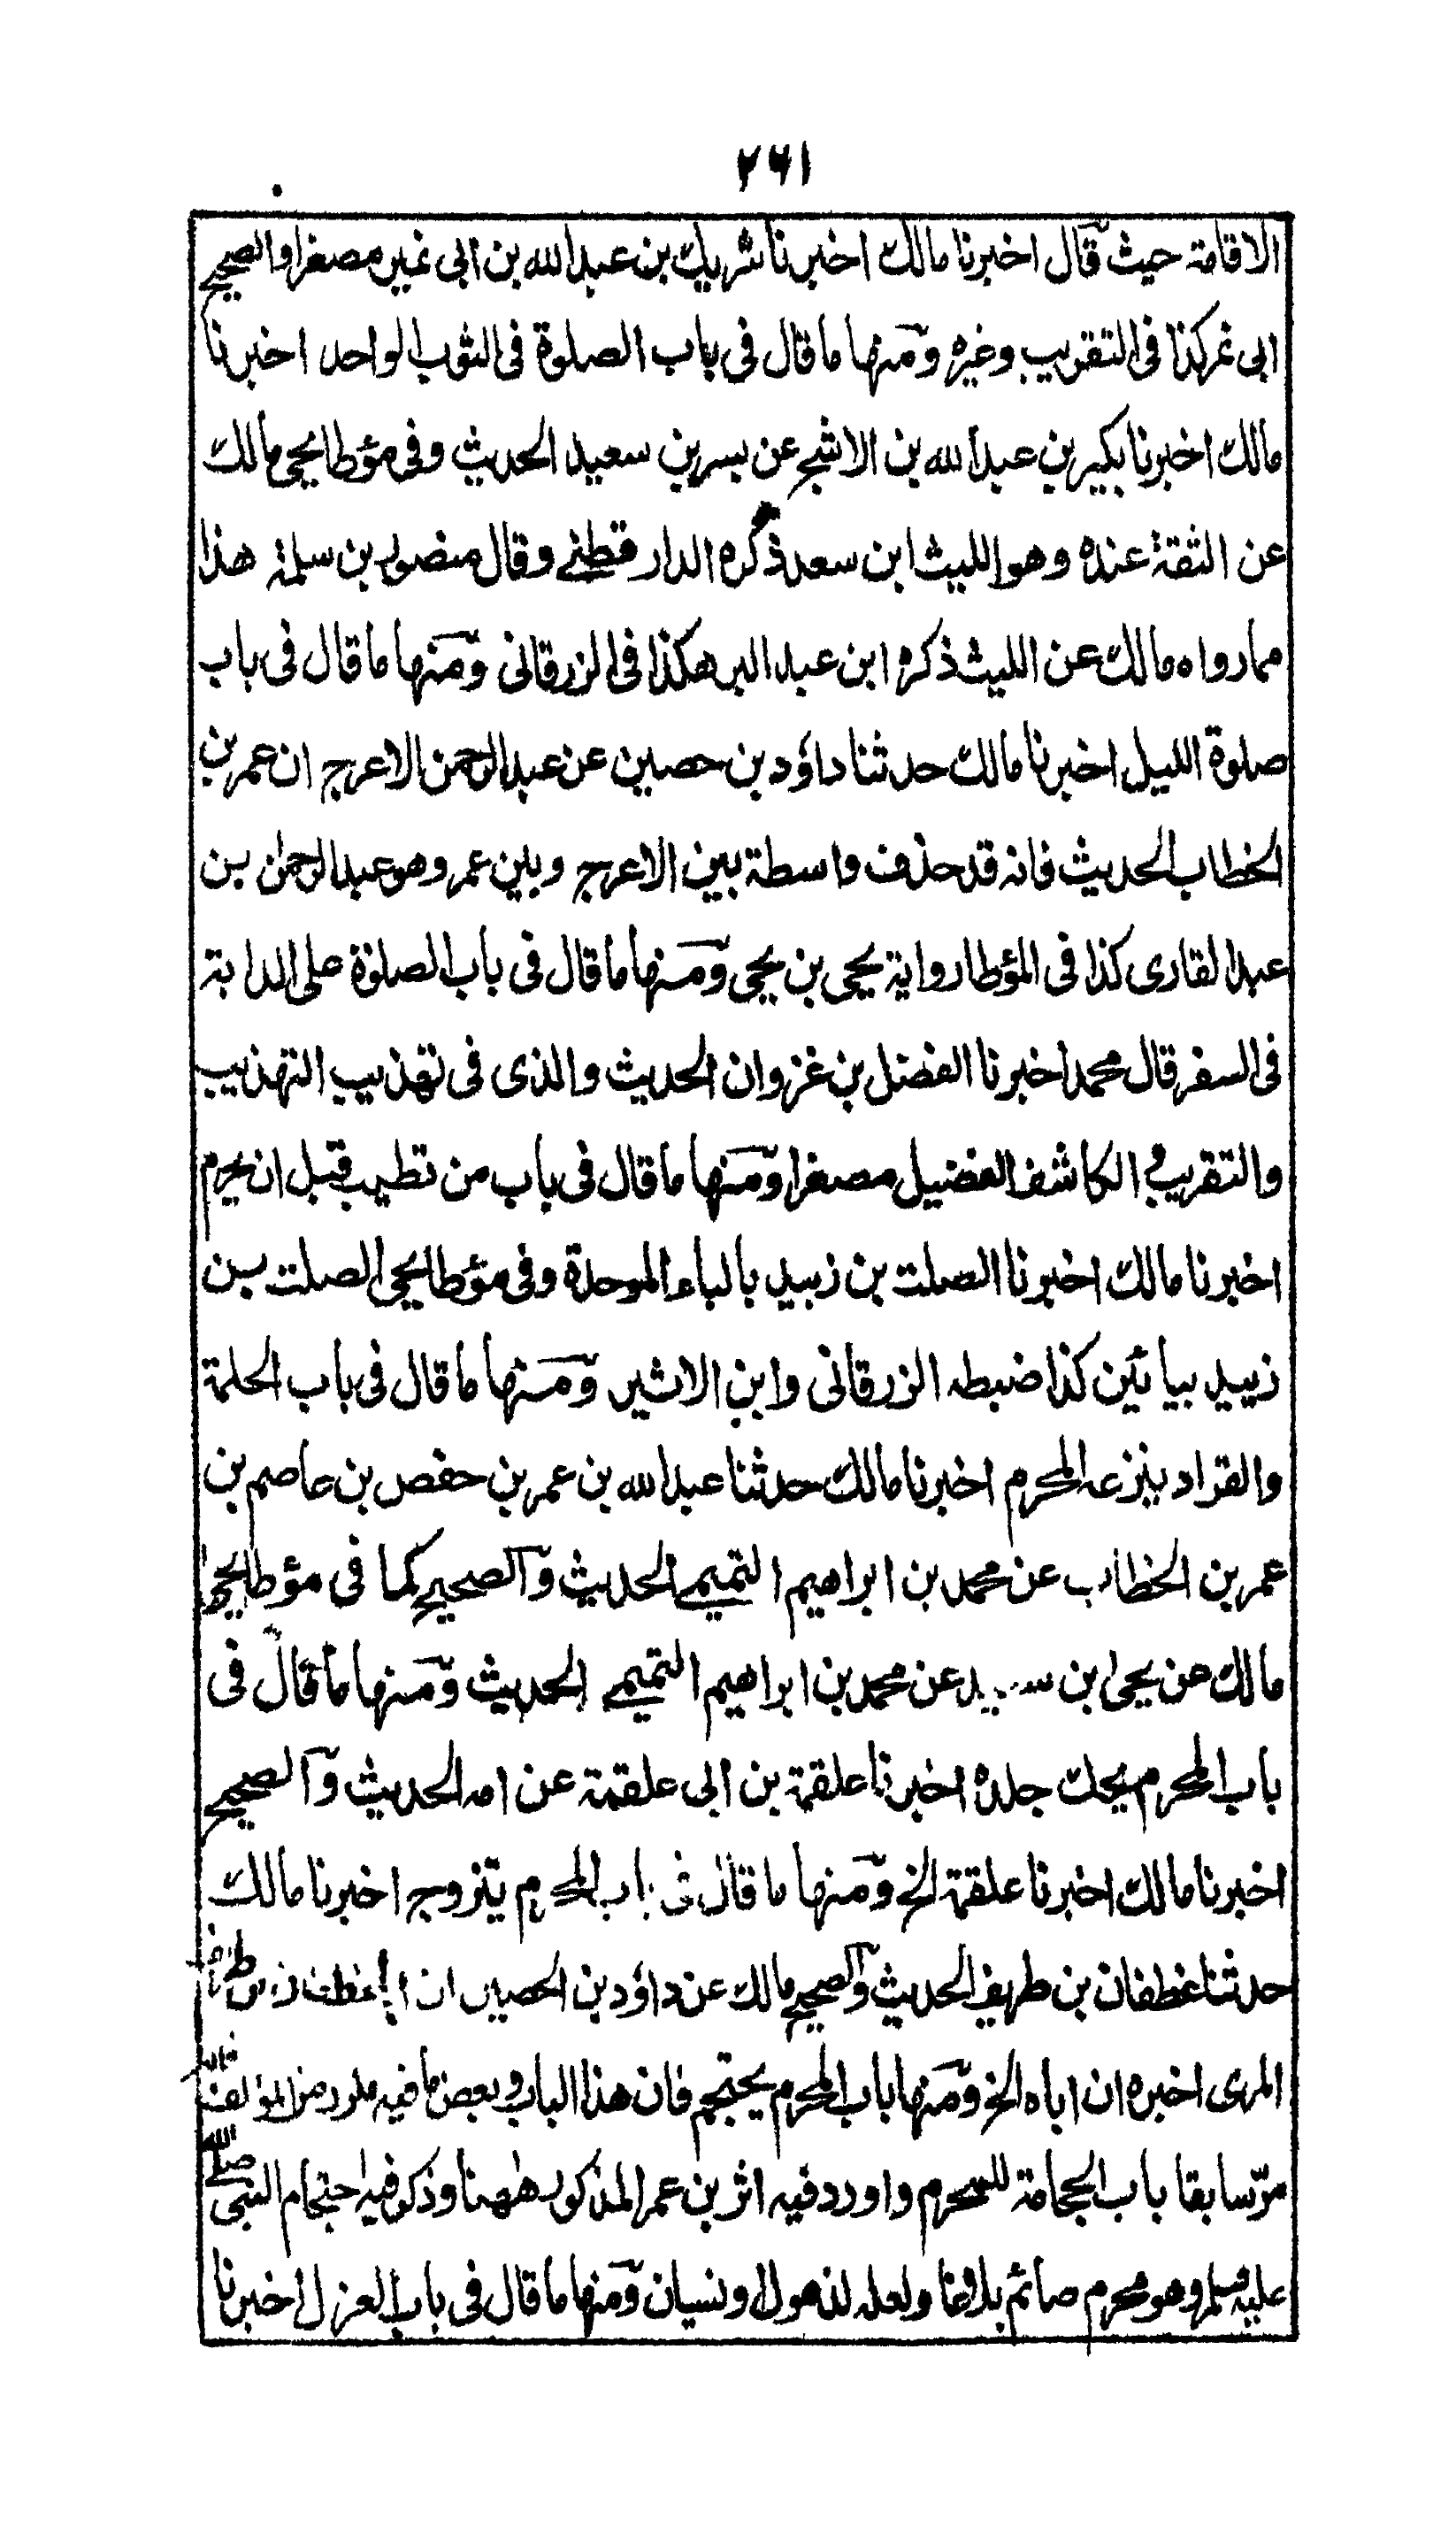 ۲۶۱
الاقامة حيث قال اخبرنا مالك اخبرنا شريك بن عبد الله بن ابى نمير مصغرا والصحيح
ابى نمر كذا فى التقريب وغيره ومنها ما قال فى باب الصلوة فى الثوب الواحد اخبرنا
مالك اخبرنا بكير بن عبد الله بن الاشج عن بسر بن سعيد الحديث وفى مؤطا يحيى مالك
عن الثقة عنده وهو الليث ابن سعد ذكره الدار قطنے وقال منصور بن سلمة هذا
مما رواه مالك عن الليث ذكره ابن عبد البر هكذا فى الزرقانى ومنها ما قال فى باب
صلوة الليل اخبرنا مالك حدثنا داؤد بن حصين عن عبد الرحمن الاعرج ان عمر بن
الخطاب الحديث فانه قد حذف واسطة بين الاعرج وبين عمر وهو عبد الرحمٰن بن
عبد القارى كذا فى المؤطا رواية يحيى بن يحيى ومنها ما قال فى باب الصلوة على الدابة
فى السفر قال محمد اخبرنا الفضل بن غزوان الحديث والذى فى تهذيب التهذيب
والتقريب و الكاشف الفضيل مصغرا ومنها ما قال فى باب من تطيب قبل ان يحرم
اخبرنا مالك اخبرنا الصلت بن زبيد بالباء الموحدة وفى مؤطا يحيى الصلت بن
زييد بيائين كذا ضبطه الزرقانى وابن الاثير ومنها ما قال فى باب الحلمة
والقراد ينزعه المحرم اخبرنا مالك حدثنا عبد الله بن عمر بن حفص بن عاصم بن
عمر بن الخطاب عن محمد بن ابراهيم التميمے الحديث والصحيح كما فى مؤطا يحيى
مالك عن يحيىٰ ابن سعيد عن محمد بن ابراهيم التميمے الحديث ومنها ما قال فى
باب المحرم يحك جلده اخبرنا علقمة بن ابى علقمة عن امه الحديث والصحيح
اخبرنا مالك اخبرنا علقمة الخ ومنها ما قال فى باب المحرم يتزوج اخبرنا مالك
حدثنا غطفان بن طريف الحديث والصحيح مالك عن داؤد بن الحصين ان ابا غطفان بن طريف
المرى اخبره ان اباه الخ ومنها باب المحرم يحتجم فان هذا الباب وبعض ما فيه مكرر من المؤلف فانه
مرّ سابقا باب الحجامة للمحرم واورد فيه اثر بن عمر المذكور هٰهنا وذكر فيه احتجام النبى صلے الله
عليه وسلم وهو محرم صائم بلاغا ولعله لذهول ونسيان ومنها ما قال فى باب العزل اخبرنا